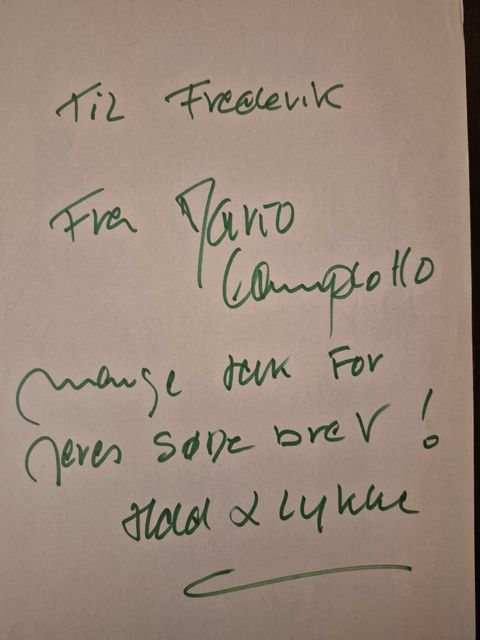 Til Frederik
Fra Mario
Campiotto
mange tak For
Jeres søde brev!
Held & lykke